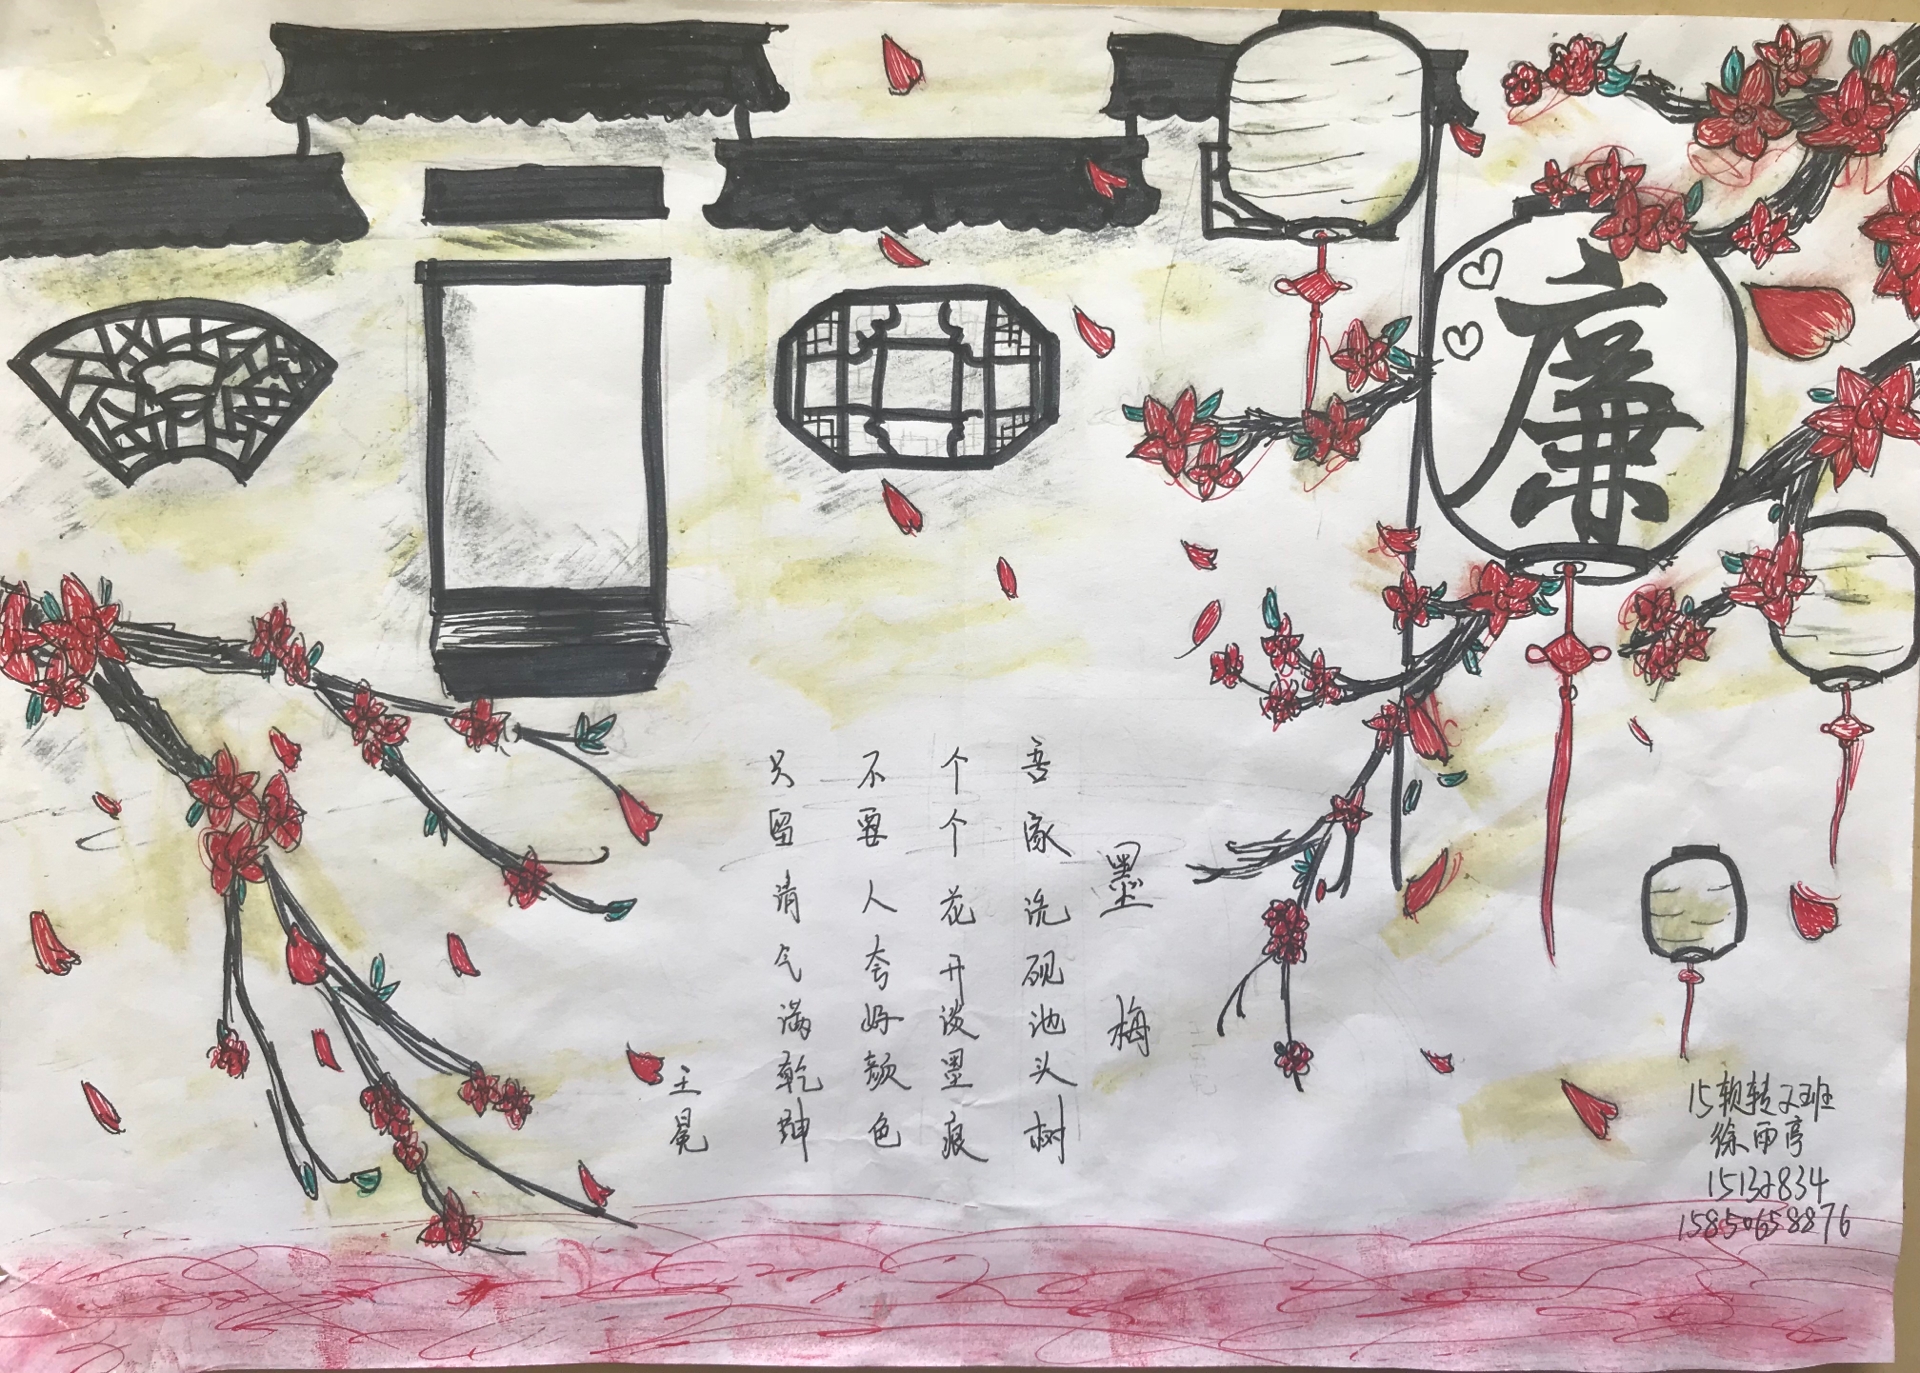 廉
墨梅
吾家洗砚池头树
个个花开淡墨痕
不要人夸好颜色
只留清气满乾坤
王冕
15软转2班
徐雨亭
15132834
15850658876